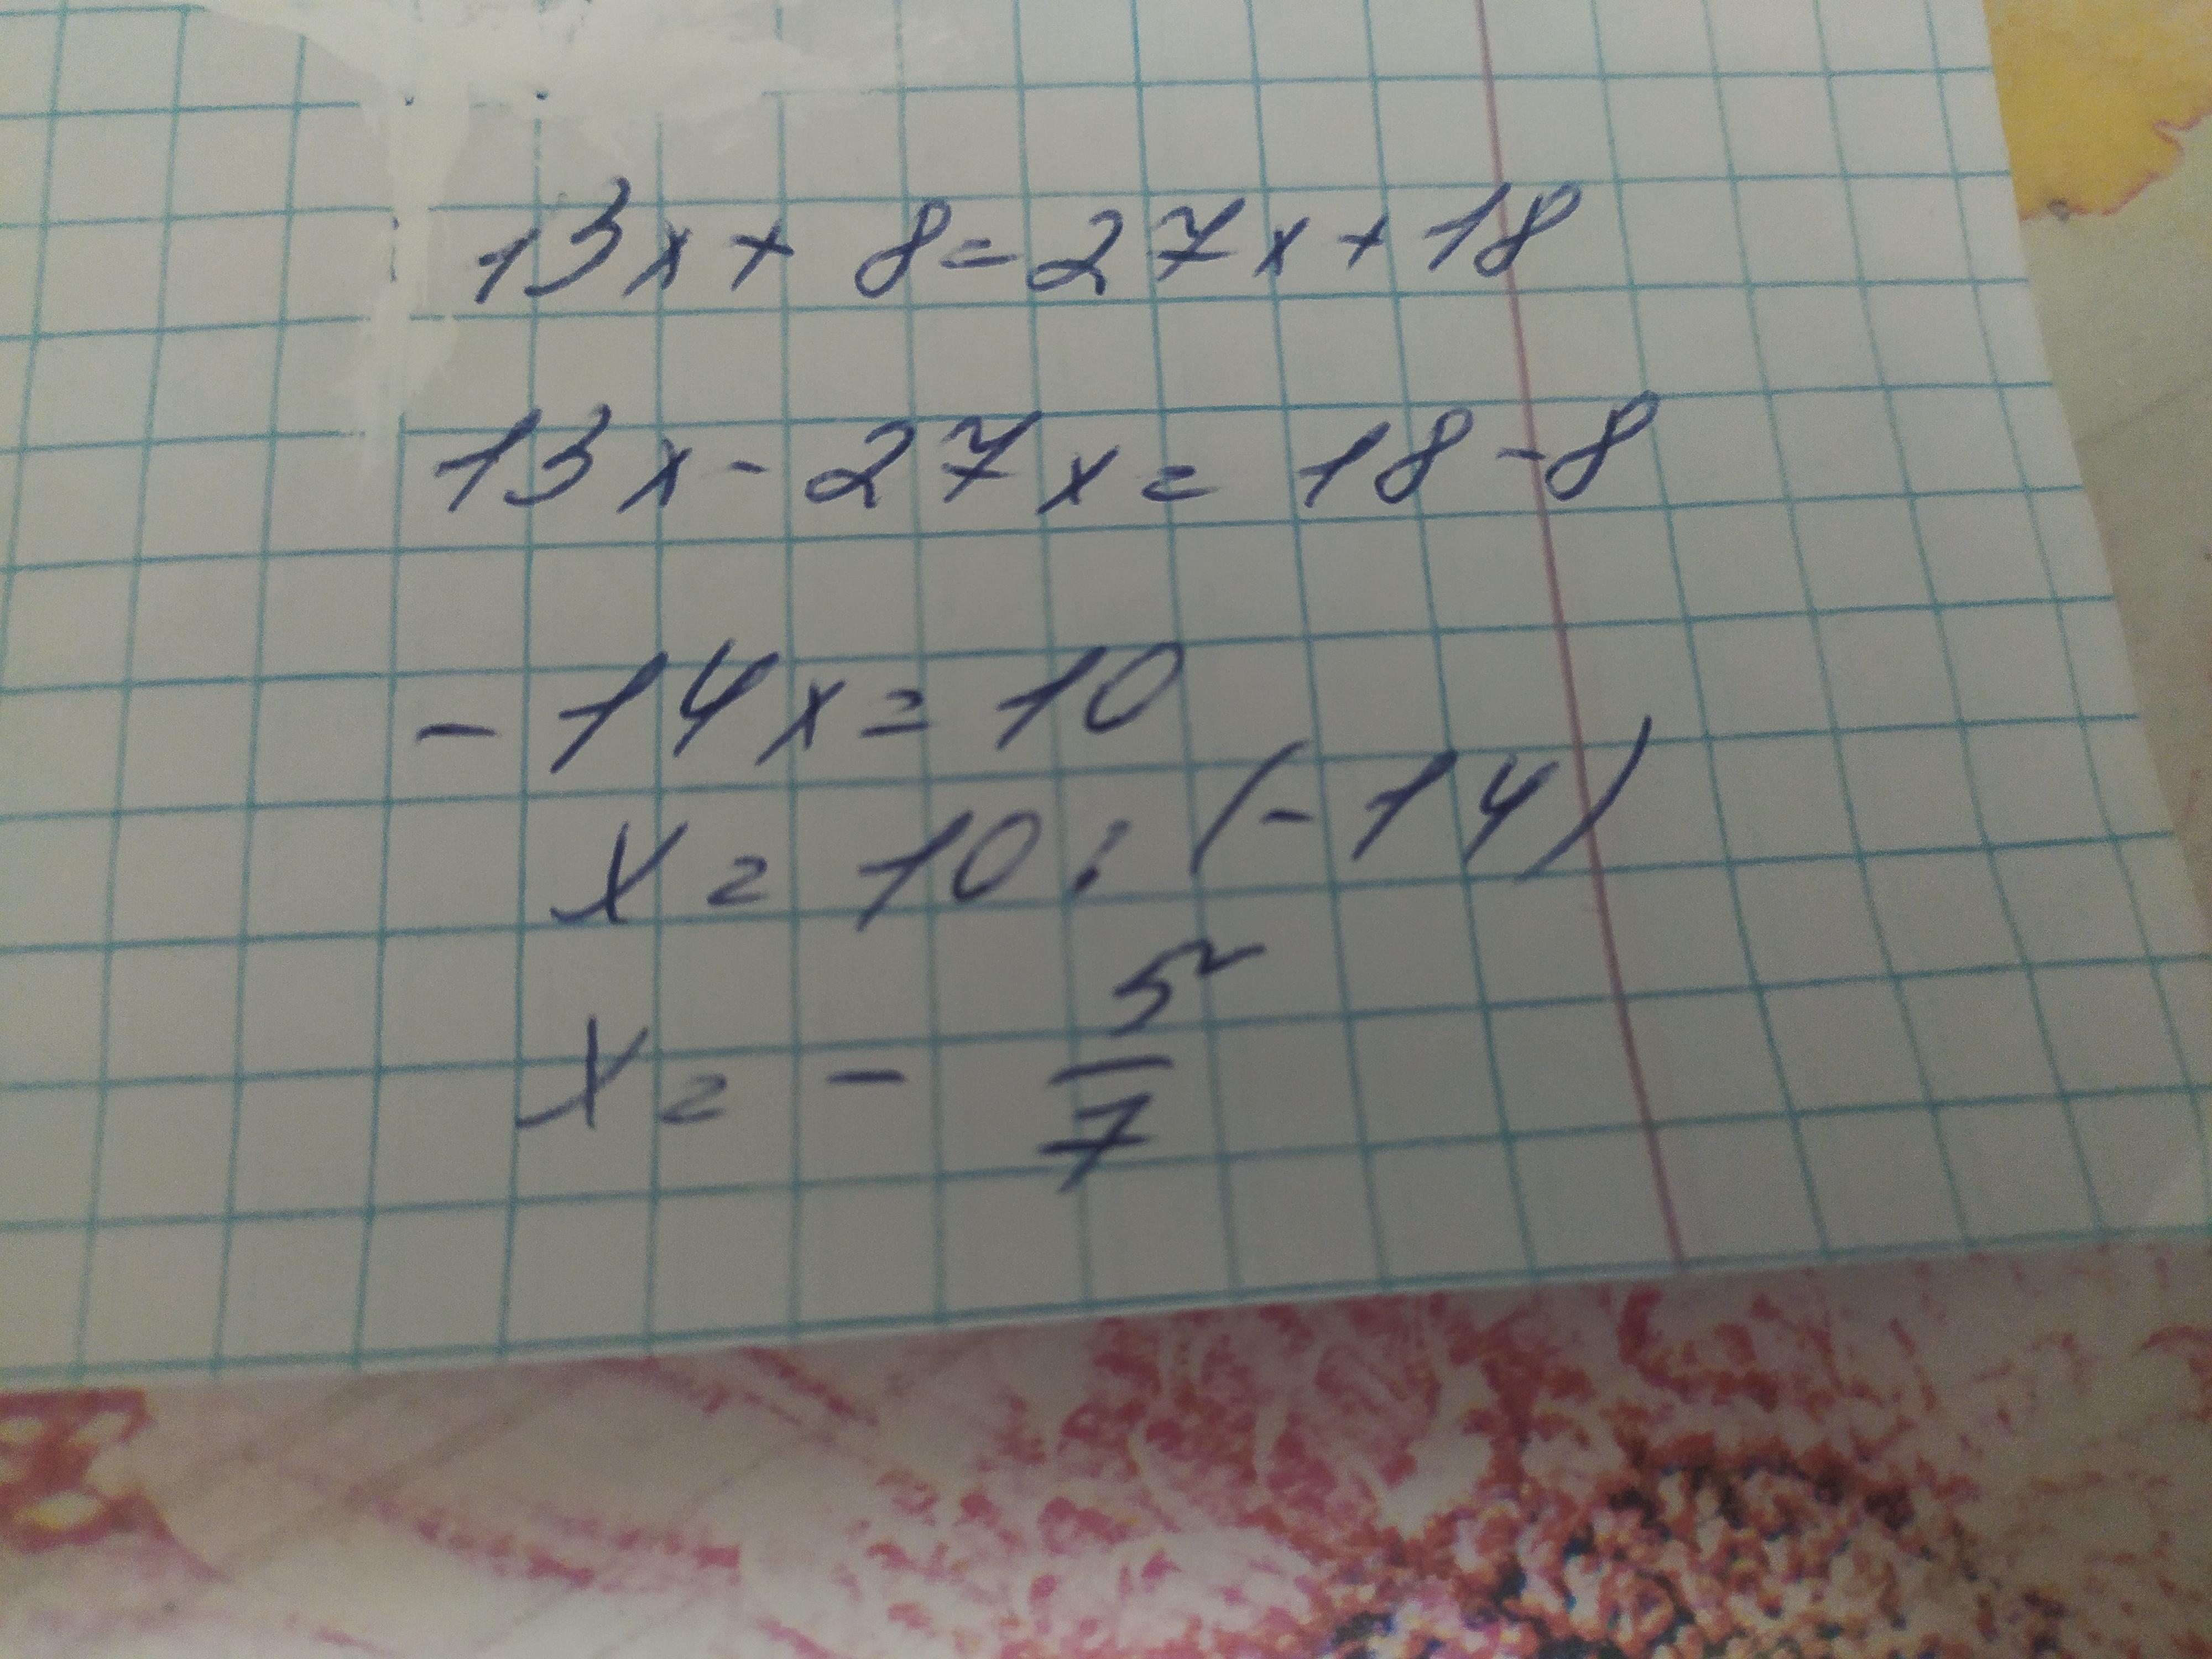 13x + 8 = 27x + 18
13x - 27x = 18 - 8
- 14x = 10
x = 10 : (-14)
x = - 5/7